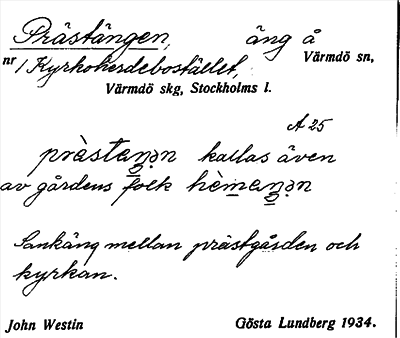 Prästängen, äng å
nr 1 Kyrkoherdebostället, Värmdö sn,
Värmdö skg, Stockholms l.
A 25
prästaŋən kallas även
av gårdens folk hèmaŋən
Sankäng mellan prästgården och
kyrkan.
John Westin Gösta Lundberg 1934.